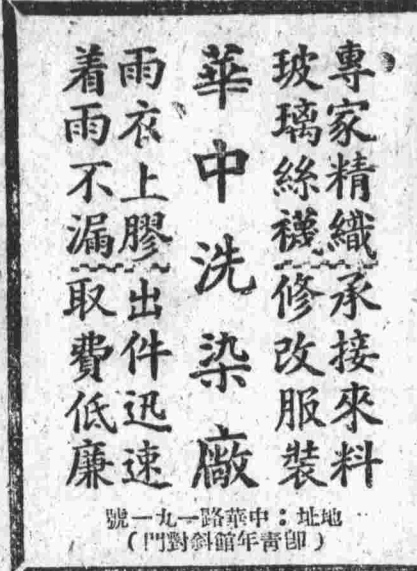 專家精織 承接來料
玻璃絲襪 修改服裝
華中洗染廠
雨衣上膠 出件迅速
着雨不漏 取費低廉
地址：中華路一九一號
（即青年館斜對門）